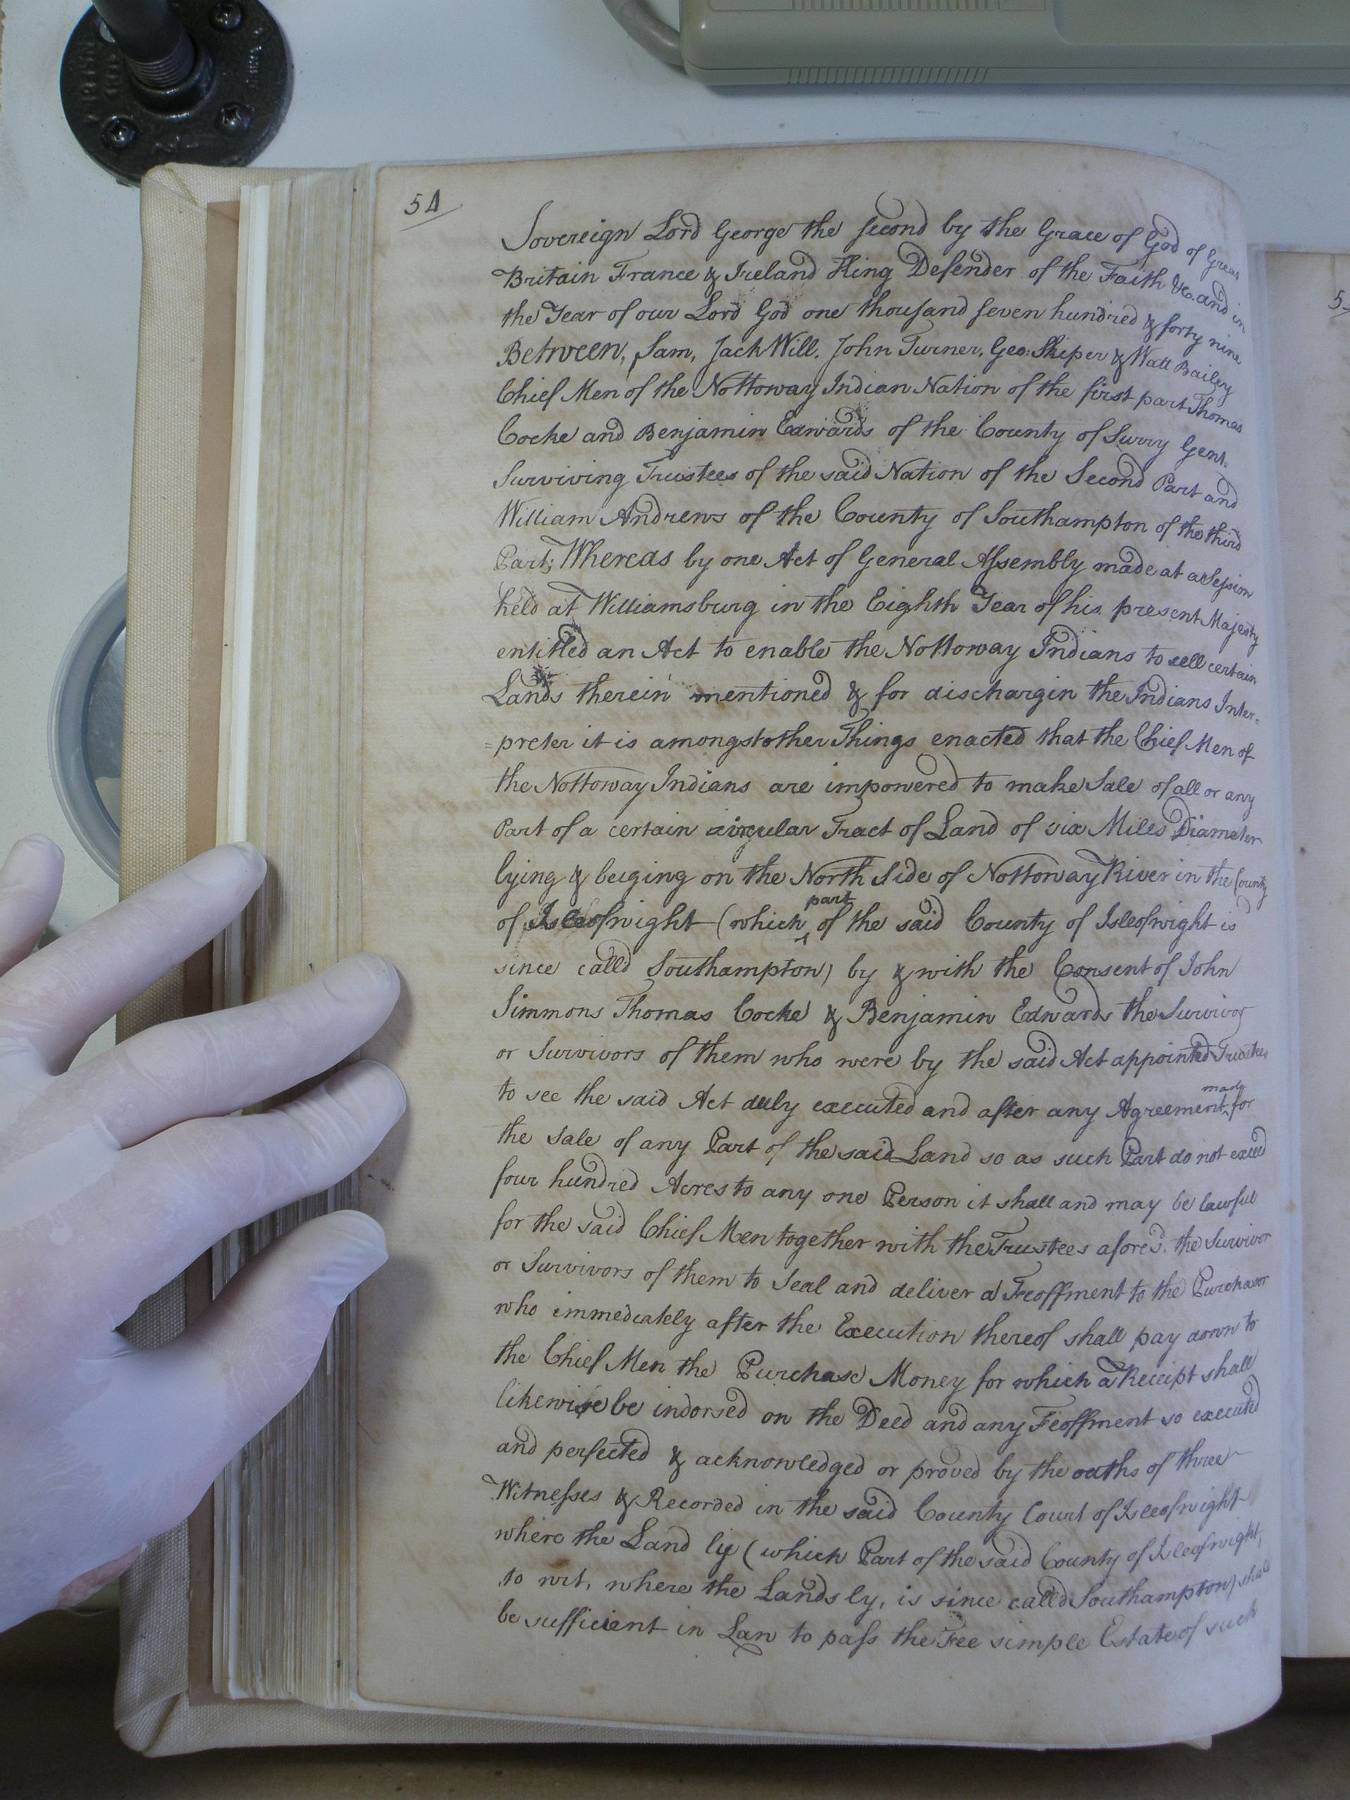 54
Sovereign Lord George the second by the Grace of God of Great
Britain France & Ireland King Defender of the Faith &c. and in
the Year of our Lord God one thousand seven hundred & forty nine
Between, Sam, Jack Will. John Turner, Geo: Skiper & Watt Bailey
Chief Men of the Nottoway Indian Nation of the first part Thomas
Cocke and Benjamin Edwards of the County of Surry Gent.
Surviving Trustees of the said Nation of the Second Part and
William Andrews of the County of Southampton of the third
Part; Whereas by one Act of General Assembly made at a Session
held at Williamsburg in the Eighth Year of his present Majesty
entitled an Act to enable the Nottoway Indians to sell certain
Lands therein mentioned & for dischargin the Indians Inter-
=preter it is amongst other Things enacted that the Chief Men of
the Nottoway Indians are impowered to make Sale of all or any
Part of a certain circular Tract of Land of six Miles Diameter
lying & beiging on the North Side of Nottoway River in the County
of Isleofwight (which part of the said County of Isleofwight is
since calld Southampton) by & with the Consent of John
Simmons Thomas Cocke & Benjamin Edwards the Survivor
or Survivors of them who were by the said Act appointed Trustees
to see the said Act duly executed and after any Agreement made for
the Sale of any Part of the said Land so as such Part do not exceed
four hundred Acres to any one Person it shall and may be lawful
for the said Chief Men together with the Trustees afores'd. the Survivor
or Survivors of them to Seal and deliver a Feoffment to the Purchasor
who immediately after the Execution thereof shall pay down to
the Chief Men the Purchase Money for which a Receipt shall
likewise be indorsed on the Deed and any Feoffment so executed
and perfected & acknowledged or proved by the oaths of three
Witnesses & Recorded in the said County Court of Isleofwight
where the Land ly (which Part of the said County of Isleofwight,
to wit, where the Lands ly, is since calld Southampton) shall
be sufficient in Law to pass the Fee simple Estate of such